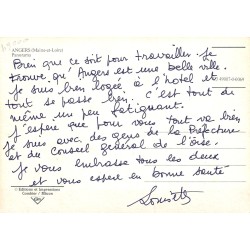 ANGERS (Maine-et-Loire)
Panorama
Bien que ce soit pour travailler. Je
trouve qu' Angers est une belle ville.
Je suis bien logée à l'hotel et
tout se passe bien. c'est tout de
même un peu fatiguant.
J'espère que pour vous tout va bien
Je suis avec des gens de la Préfecture
et du Conseil general de l'Oise.
Je vous embrasse tous les deux
et vous espère en bonne santé